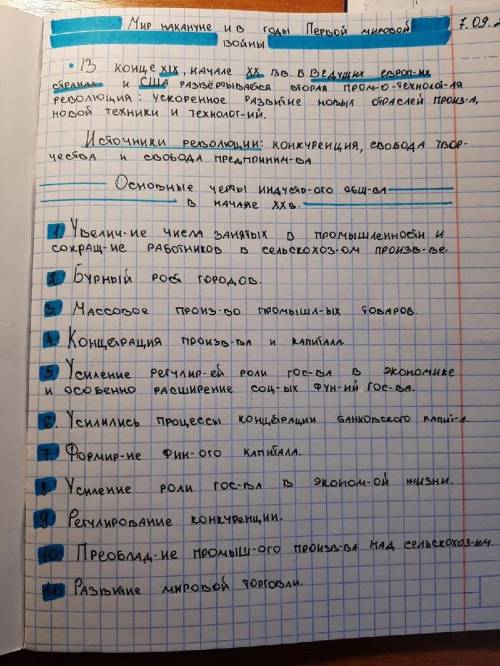 Мир накануне и в годы Первой мировой
войны
7.09.2
• В конце XIX, начале XX вв. в ведущих европ-их
странах и США развёртывается вторая пром-о-технолог-ая
революция: ускоренное развитие новых отраслей произ-а,
новой техники и технолог-ий.
Источники революции: конкуренция, свобода твор-
чества и свобода предприним-ва
Основные черты индустр-ого общ-ва
в начале XXв.
1. Увелич-ие числа занятых в промышленности и
сокращ-ие работников в сельскохоз-ом произв-ве.
2. Бурный рост городов.
3. Массовое произ-во промышл-ых товаров.
4. Концетрация произв-ва и капитала.
5. Усиление регулир-ей роли гос-ва в экономике
и особенно расширение соц-ых фун-ий гос-ва.
6. Усилились процессы концетрации банковского капит-а.
7. Формир-ие фин-ого капитала.
8. Усиление роли гос-ва в эконом-ой жизни.
9. Регулирование конкуренции.
10. Преоблад-ие промыш-ого произв-ва над сельскохоз-ым.
11. Развитие мировой торговли.